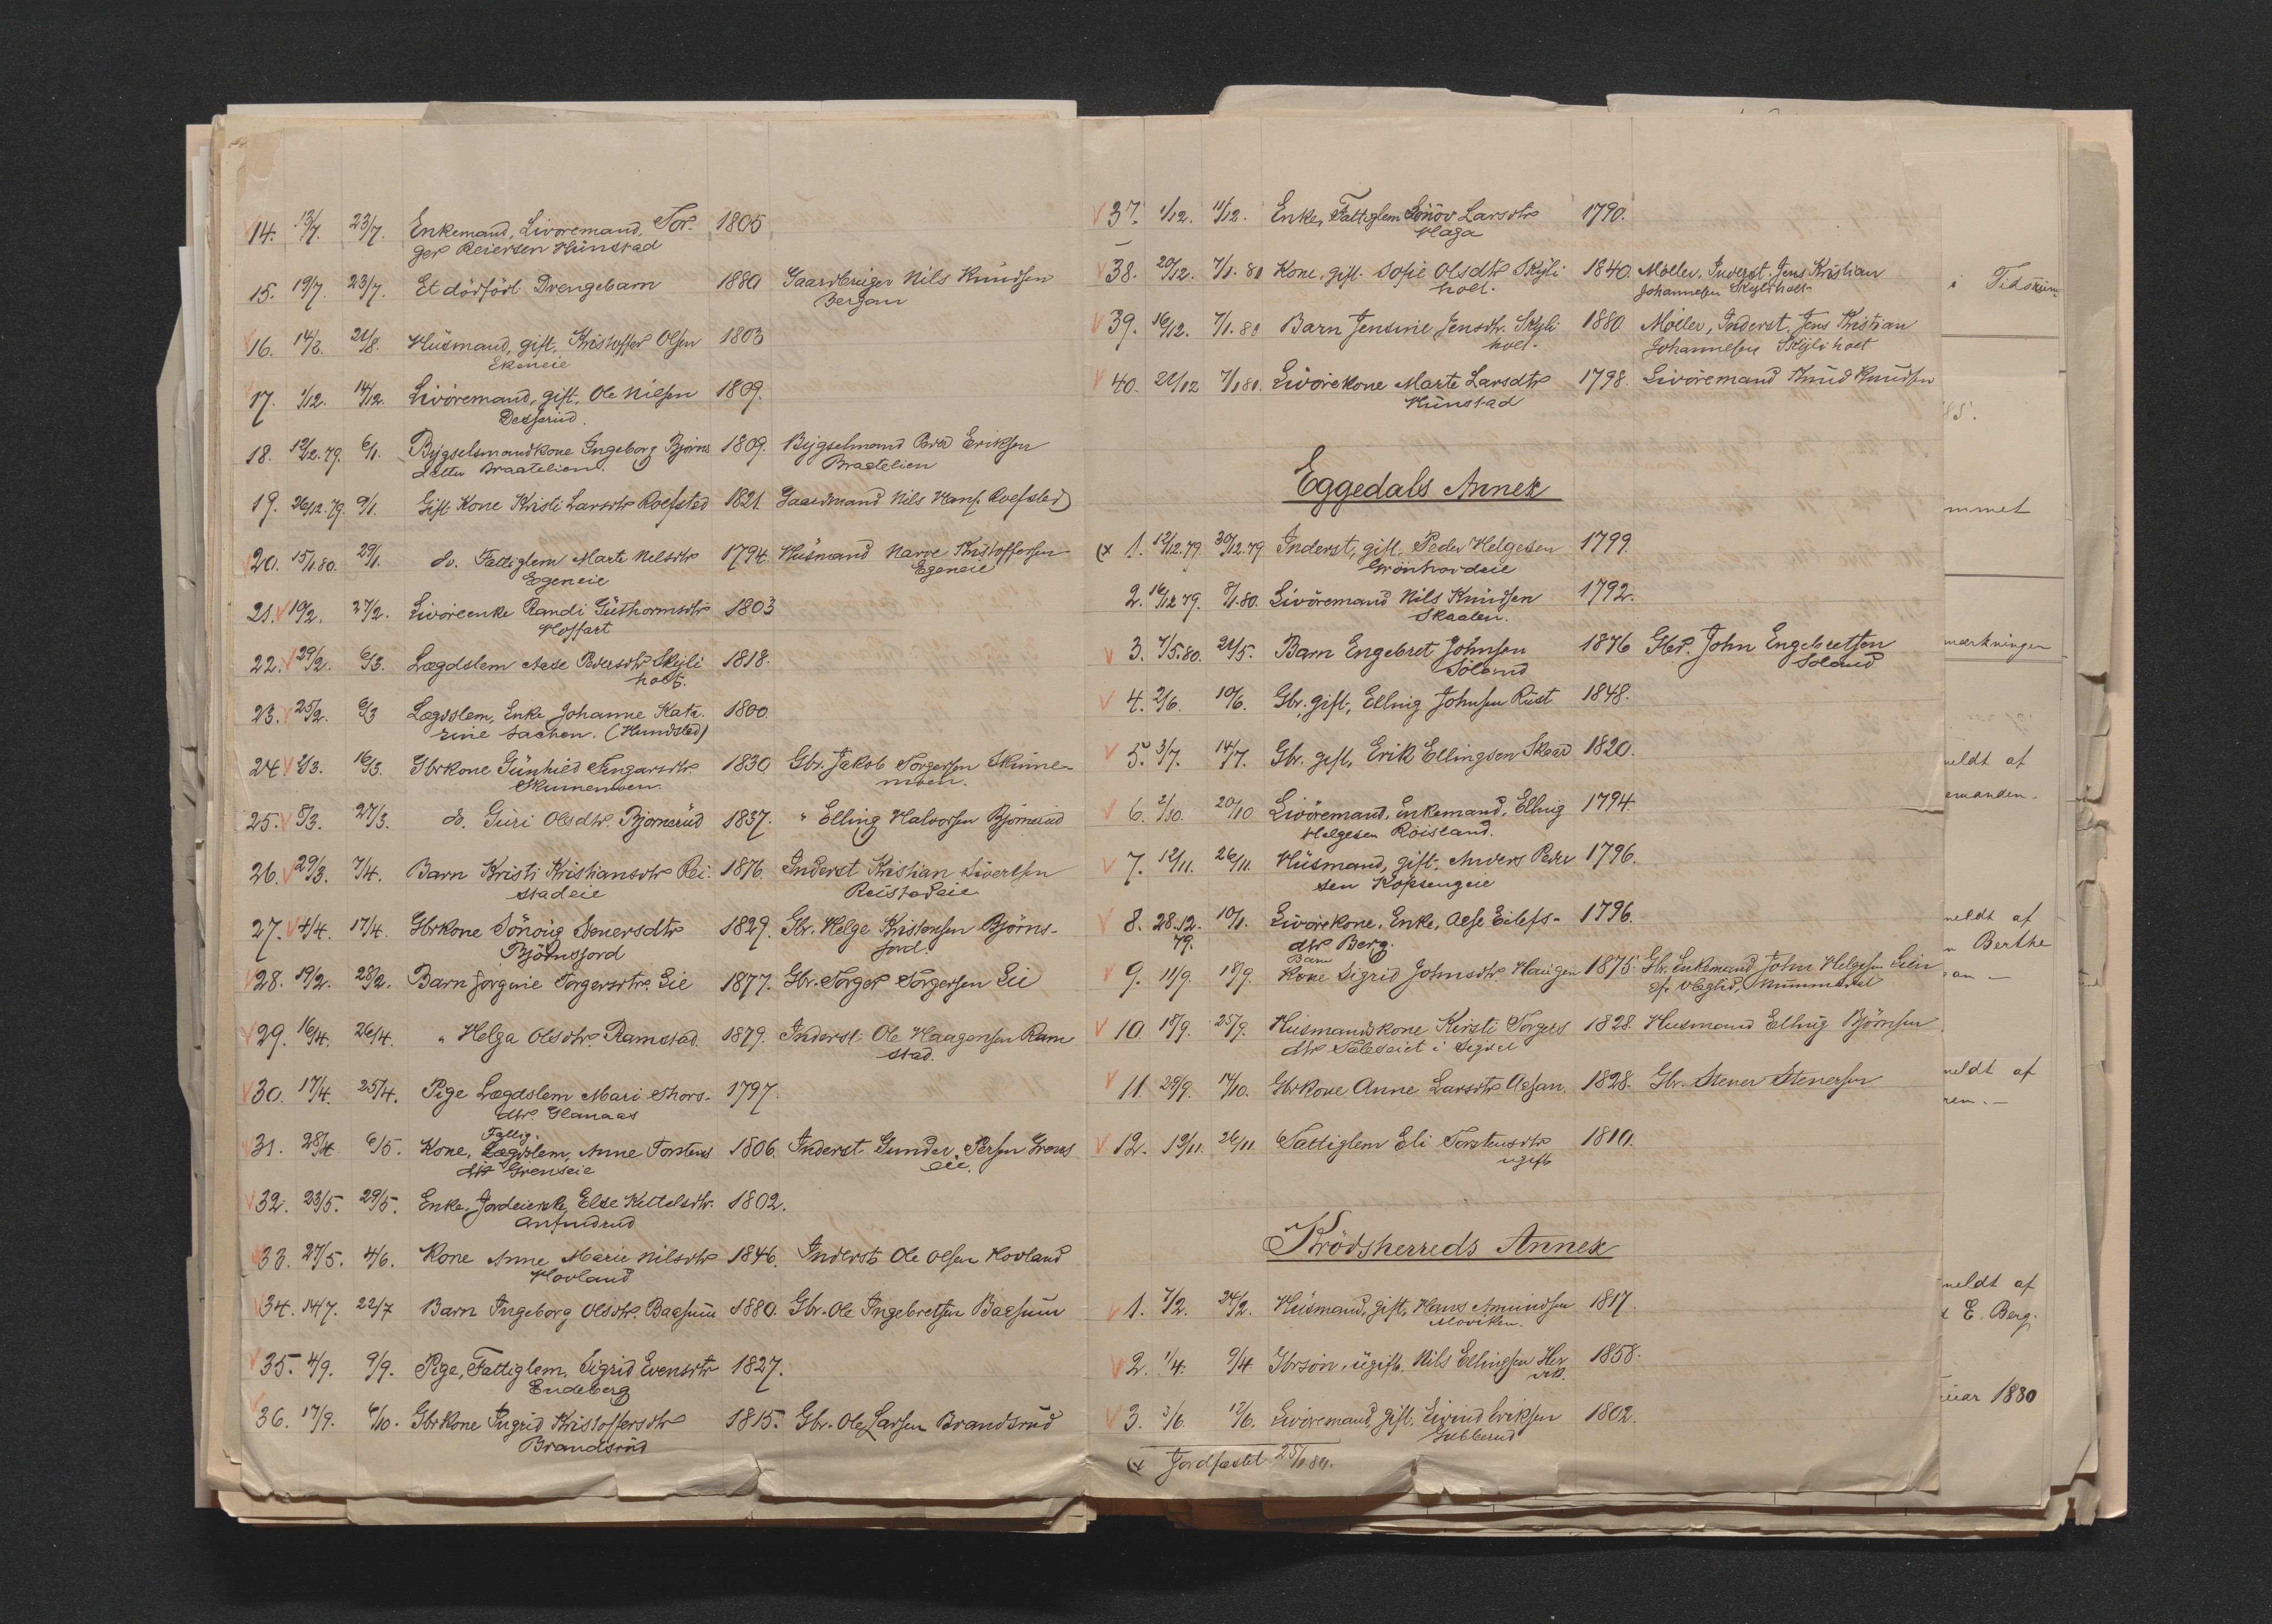 14. 13/7. 23/7. Enkemand, Livöremand, Tor- 1805
ger Reiersen Hünstad
15. 19/7. 23/7. Et dödfödt Drengebarn 1880 Gaardbruger Nils Knudsen
Bergan
16. 14/8. 21/8. Hüsmand, gift, Kristoffer Olsen 1803
Ekeneie
17. 1/12. 14/12. Livöremand, gift, Ole Nilsen 1809.
18. 12/12.79. 6/1. Bygselsmandkone Ingeborg Björns 1809. Bygselmand Peder Eriksen
datter Braatelien. Braatelien
19. 26/12.79. 9/1. Gift Kone Kristi Larsdtr Roefsted 1821. Gaardmand Nils Hans. Roefsted
20. 15/1.80. 29/1. do. Fattiglem Marte Nilsdtr 1794. Hüsmand Narve Kristoffersen
Egeneie Egeneie
21. 19/2. 27/2. Livöreenke Randi Güthormsdtr 1803
Hoffart
22. 29/2. 6/3. Lægdslem Aase Pedersdtr Skyli 1818.
holt.
23. 25/2. 6/3 Lægdslem, Enke Johanne Kata- 1800.
rine Sachen. (Hundsted)
24. 2/3. 16/3. Gbrkone Günhild Fingarsdtr. 1830 Gbr. Jakob Torgersen Skinne-
Skinnemoen. moen.
25. 8/3. 27/3. do. Guri Olsdtr. Bjornerüd 1837. " Elling Halvorsen Björnerud
26. 29/3. 7/4. Barn Kristi Kristiansdtr Rei- 1876. Inderst Kristian Sivertsen
stadeie Reistadeie
27. 4/4. 17/4. Gbrkone Sönöig Stenersdtr 1829. Gbr. Helge Kristensen Björns-
Björnsjord jord.
28. 19/2. 28/2. Barn Jorgine Torgersdtr. Lie 1877. Gbr. Torger Torgersen Lie
29. 16/4. 26/4. " Helga Olsdtr. Ramstad. 1879. Inderst Ole Haagensen Ram
stad.
30. 17/4. 25/4. Pige Lægdslem Mari Thors- 1797.
dtr Glanaas
Fattig.
31. 28/4. 6/5. Kone, Lægdslem, Anne Torstens 1806. Inderst Gunder Persen Grens
dtr Grenseie eie.
32. 23/5. 29/5. Enke, Jordeierske, Else Kittelsdtr. 1802.
Anfindrud
33. 27/5. 4/6. Kone Anne Marie Nilsdtr 1846. Inderst Ole Olsen Hovland
Hovland
34. 14/7. 22/7 Barn Ingeborg Olsdtr. Baasum 1880. Gbr. Ole Ingebretsen Baasum
35. 4/9. 9/9. Pige, Fattiglem, Sigrid Evensdtr 1827.
Endeberg
36. 17/9. 6/10. Gbrkone Ingrid Kristoffersdtr 1815. Gbr. Ole Larsen Brandsrud
Brandsrud
37. 1/12. 11/12. Enke, Fattiglem Sönöv Larsdtr 1790.
Haga
38. 20/12. 7/1.80 Kone, gift. Sofie Olsdtr Skyli 1840. Möller, Inderst. Jens Kristian
holt. Johannesen Skyliholt
39. 16/12. 7/1.80 Barn Jensine Jensdtr. Skyli 1880. Möller, Inderst. Jens Kristian
holt. Johannesen Skyliholt
40. 21/12 7/1.80. Livörekone Marte Larsdtr 1798. Livöremand Knud Knudsen
Hünstad
Eggedals Annex
(x 1. 12/12.79. 30/12.79 Inderst, gift. Peder Helgesen 1799.
Grönhovdeie
2. 16/12 79. 8/1.80. Livöremand Nils Knudsen 1792.
Skaalen.
3. 7/5.80. 21/5. Barn Engebret Johnsen 1876 Gbr. John Engebretsen
Söland Soland
4. 2/6. 10/6. Gbr. gift, Elling Johnsen Rüst 1848.
5. 3/7. 14/7. Gbr. gift, Erik Ellingsen Skead 1820.
6. 2/10. 20/10 Livöremand, Enkemand, Elling 1794.
Helgesen Röisland.
7. 12/11. 26/11. Hüsmand, gift. Anders Peder 1796.
sen Kopsengeie
8. 28.12. 10/1. Livörekone, Enke, Aase Eilefs- 1796.
79. dtr Berg.
Barn
9. 11/9. 18/9. Kone Sigrid Johnsdtr. Haugen 1875. Gbr. Enkemand John Helgesen Lien
10. 18/9. 25/9. Husmandskone Kirsti Torgers 1828. Husmand Elling Björnsen
dtr Saleseiet i Sigdal
11. 29/9. 14/10. Gbrkone Anne Larsdtr Aasan. 1828. Gbr. Stener Stenersen
12. 19/11. 26/11. Fattiglem Eli Torstensdtr 1810.
ugift
Krödsherreds Annex
1. 7/2. 24/2. Hüsmand, gift, Hans Amundsen 1817.
Moviken.
2. 1/4. 9/4 Gbrsön, ugift. Nils Ellingsen Her 1858.
vik.
3. 3/6. 12/6. Livöremand, gift. Eivind Eriksen 1802.
Gubberud
(x Jordfæstet 25/1.80.
i
mmet
mærkninger
meldt af
emanden.
meldt af
n Berthe
an —
meldt af
ren. —
meldt af
E. Berg.
nuar 1880